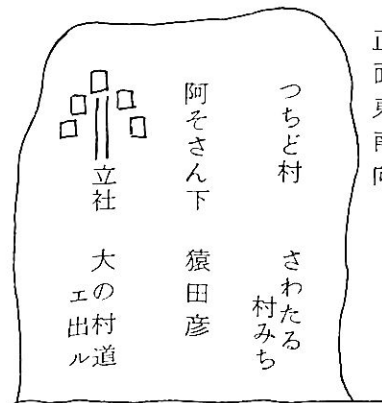 正面東南向
つちど村　さわたる
村みち
阿そさん下　猿田彦
立社　大の村道
エ出ル